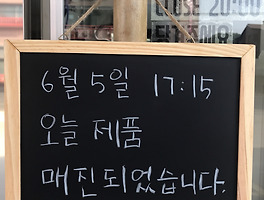 CLOSE 20:00
6월 5일 17:15
오늘 제품
매진되었습니다.